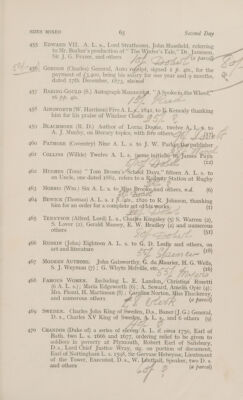 SIDES MIXED 63 Second Day
455 EDWARD VII. A. L. s., Lord Strathcona, John Masefield, referring
to Mr. Barker's production of " The Winter's Tale," Dr. Jameson,
Sir J. G. Frazer, and others (a parcel)
456 GORDON (Charles) General, Auto receipt, signed 2 p. 4to, for the
payment of £3,200, being his salary for one year and 9 months,
dated 17th December, 1875, scarce
457 BARING GOULD (S.) Autograph Manuscript, " A Spoke in the Wheel,"
16 pp. 4to.
458 AINSWORTH (W. Harrison) Five A. L. s., 1842, to E. Kenealy thanking
him for his praise of Windsor Castle
459 BLACKMORE (R. D.) Author of Lorna Doone, twelve A. L. s. to
A. J. Munby, on literary topics, with five others
460 PATMORE (Coventry) Nine A. L. s. to J. W. Parker the publisher
461 COLLINS (Wilkie) Twelve A. L. s. to James Payn
462 HUGHES (Thos) " Tom Brown's School Days," fifteen A. L. s. to
an Uncle, one dated 1862, refers to a Railway Station at Rugby
463 MORRIS (Wm.) Six A. L. s. to Miss Brooke and others, n.d. (6)
464 BEWICK (Thomas) A. L. s. 1 p. 4to, 1820 to R. Johnson, thanking
him for an order for a complete set of his works
465 TENNYSON (Alfred, Lord) L. s., Charles Kingsley (5) S. Warren (2),
S. Lover (2), Gerald Massey, E. W. Bradley (2) and numerous
others (51)
466 RUSKIN (John) Eighteen A. L. s. to G. D. Leslie and others, on
art and literature (18)
467 MODERN AUTHORS. John Galsworthy, G. du Maurier, H. G. Wells,
S. J. Weyman (7) ; G. Whyte Melville, etc.
468 FAMOUS WOMEN. Including L. E. Landon, Christina Rossetti
(6 A. L. s.) Maria Edgeworth (6), A. Sewart, Amelia Opie (4),
Mrs. Piozzi, H. Martineau (8), Caroline Norton, Miss Thackeray,
and numerous others (a parcel)
469 SWEDEN. Charles John King of Sweden, D.s., Baner (J. G.) General,
D. s., Charles XV King of Sweden, A. L. s., and 6 others
470 CHANDOS (Duke of) a series of eleven A. L. s. circa 1730, Earl of
Bath, two L. s. 1666 and 1677, ordering relief to be given to
soldiers in poverty at Plymouth, Robert Earl of Salisbury,
D. s., Lord Chief Justice Wray, sig. on portion of document,
Earl of Nottingham L. s. 1598, Sir Gervase Helwysse, Lieutenant
of the Tower, Executed, D. s., W. Lenthall, Speaker, two D. s.
and others (a parcel)